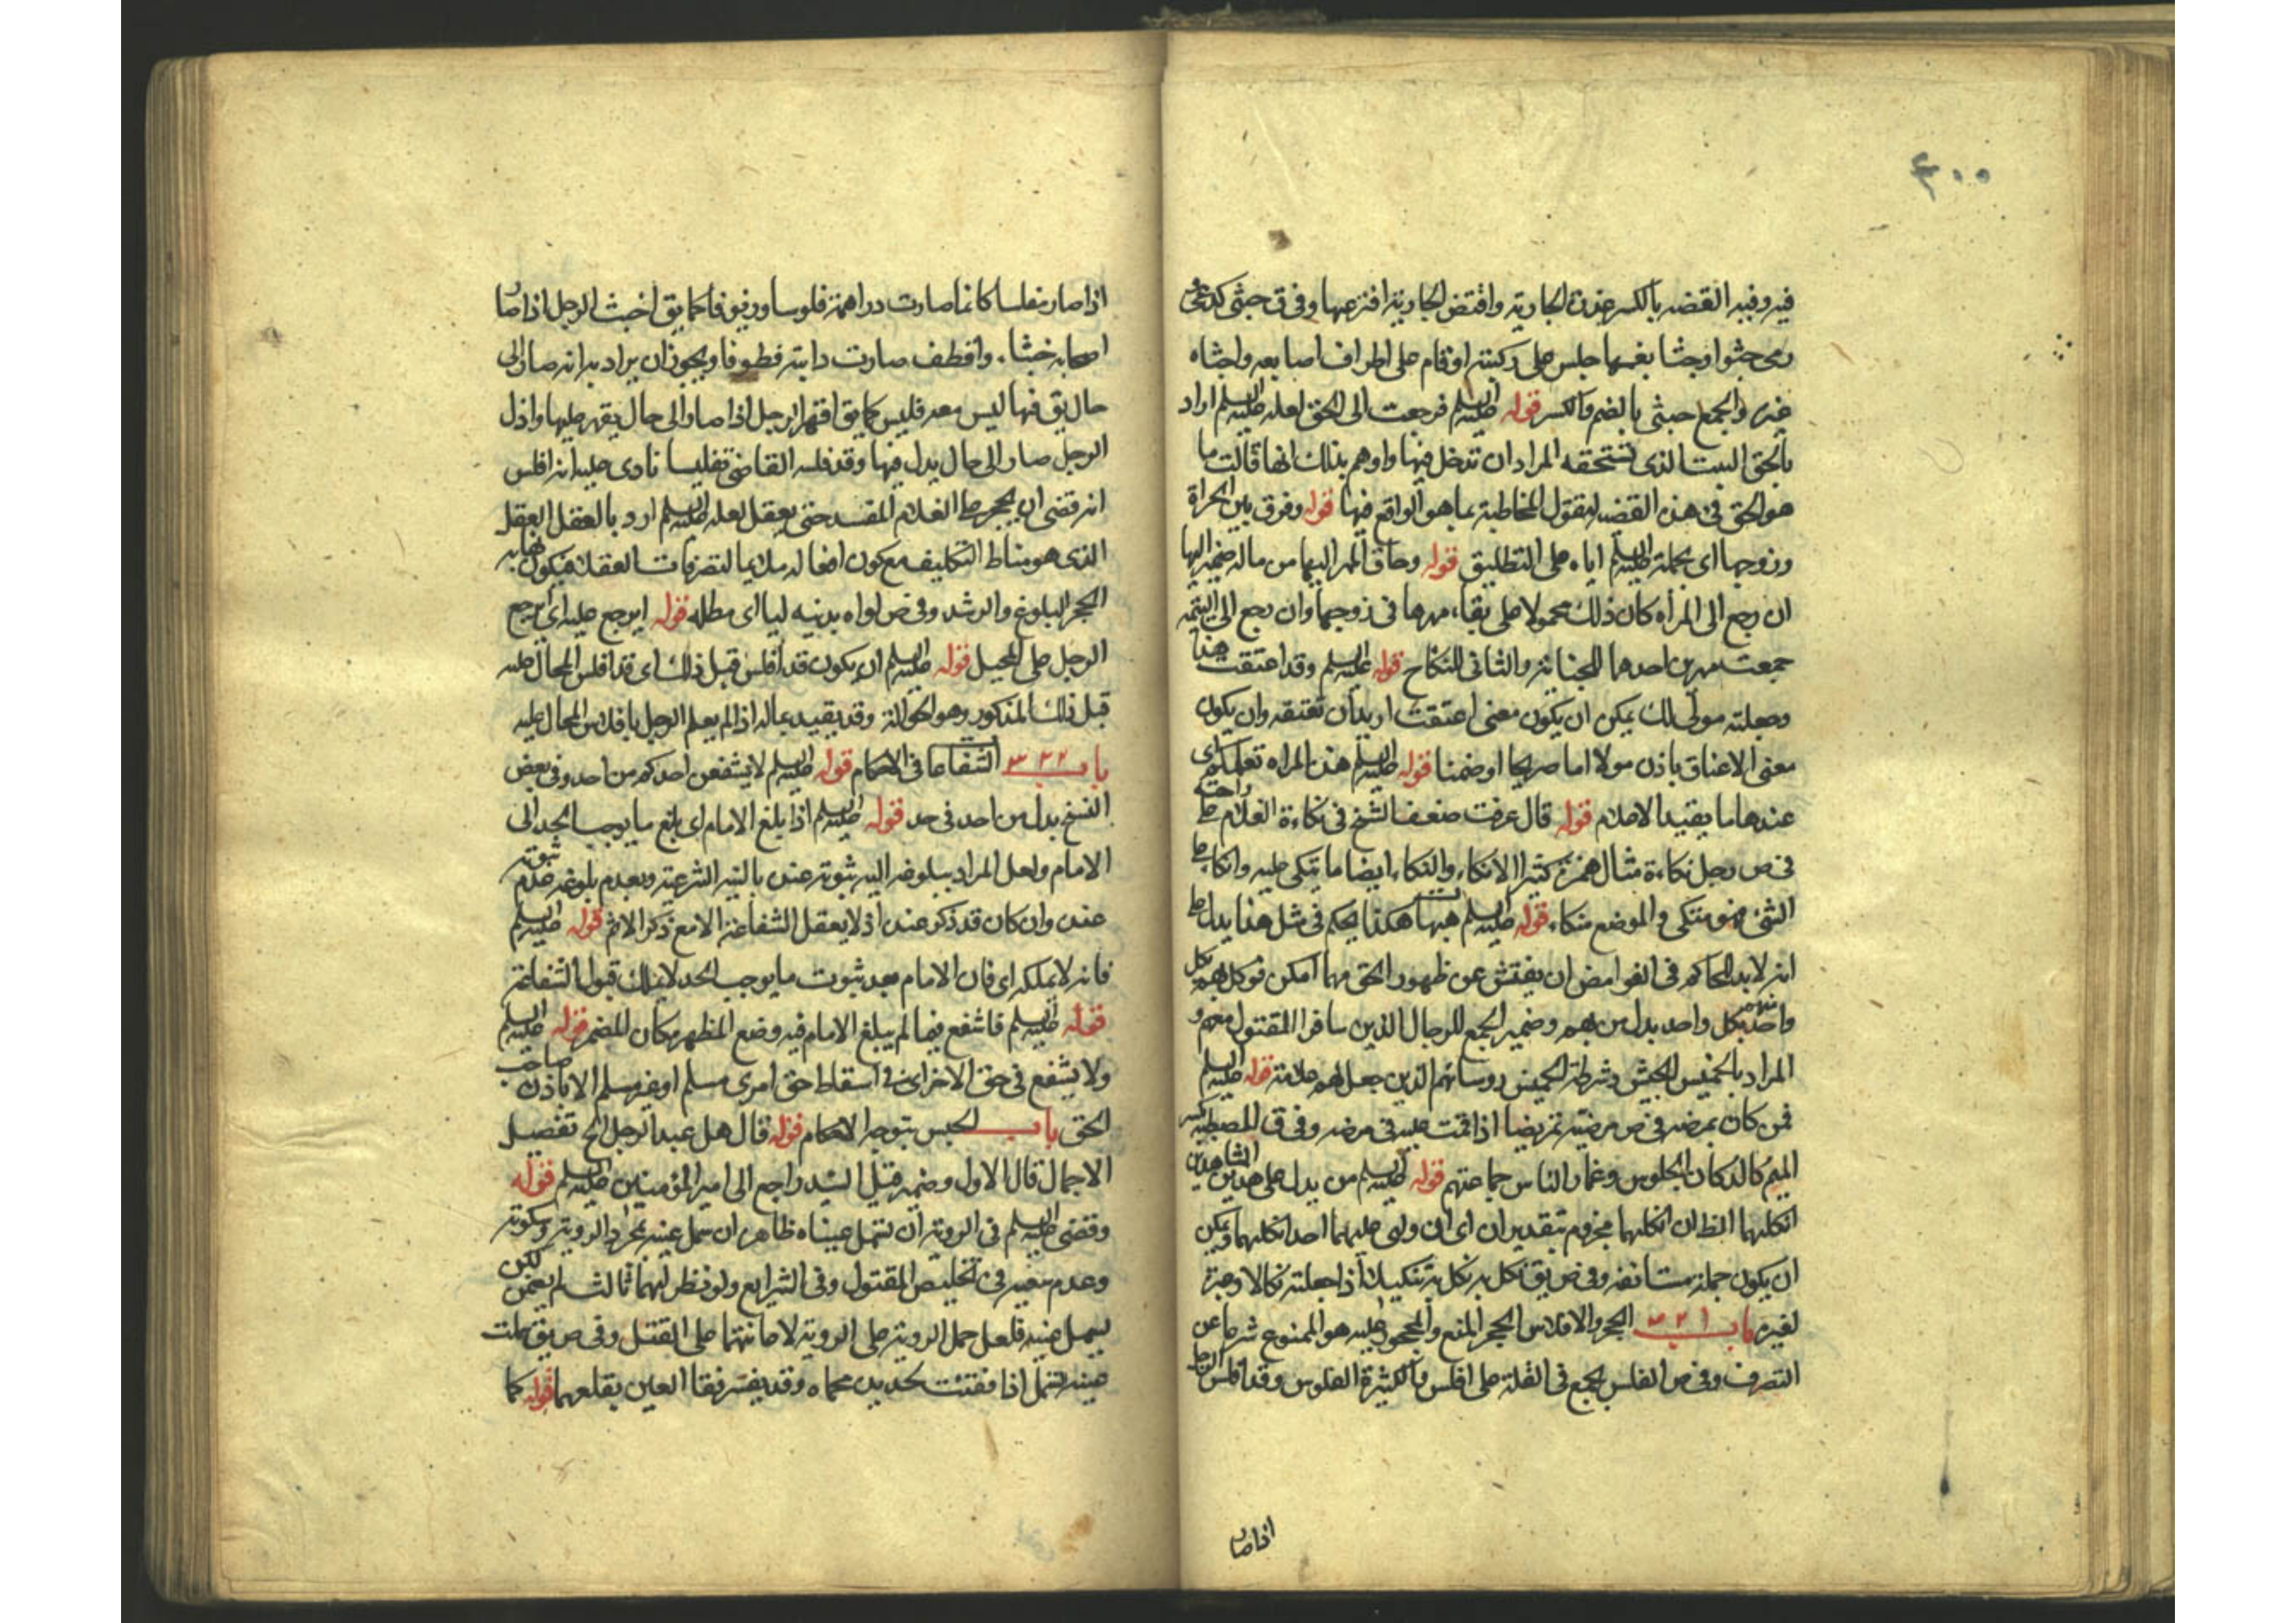 ٤٠٠
فيه وفيه القضه بالكسر عذرة الجارية واقتض الجارية افترعها وفي ق جثى كدعى
رمى جثوا وجثيا بضمهما جلس على ركبتيه او قام على اطراف اصابعه واجثاه
غيره والجمع جثي بالضم والكسر قوله عليه السلم فرجعت الى الحق لعله عليه السلم اراد
بالحق البيت الذي تستحقه المراد ان تدخل فيها واوهم بذلك انها قالت ما
هو الحق في هذه القضيه ليقول المخاطبة بما هو الواقع فيها قوله وفرق بين المراة
وزوجها اى بحمله عليه السلم اياه على التطليق قوله وساق المهر اليها من ماله ضمير اليها
ان رجع الى المرأه كان ذلك محمولا على بقاء مهرها في زوجها وان رجع الى اليتيمه
جمعت مهرين احدهما للجناية والثاني للنكاح قوله عليه السلم وقد اعتقت هذا
وجعلته مولى لك يمكن ان يكون معنى اعتقت اريد ان تعتقه وان يكون
معنى الاعتاق باذن مولاه اما صريحا او ضمنا قوله عليه السلم هذه المراه تعلمكم اى
عندها ما يفيد الاعلام قوله قال عرفت ضعف الشيخ في تكاءة الغلام على راحته
في ص رجل تكاءة مثال همزة كثير الاتكاء والتكاء ايضا ما يتكى عليه واتكا على
الشئ فهو متكى والموضع متكاء قوله عليه السلم هيهات هكذا يحكم في مثل هذا يدل على
انه لابد للحاكم في الغوامض ان يفتش عن ظهور الحق مهما امكن قوله وكل بهم بكل
واحد منهم بكل واحد بدل من بهم وضمير الجمع للرجال الذين سافر المقتول معهم و
المراد بالخميس الجيش وشرطة الخميس روسائهم الذين جعل لهم علامة قوله عليه السلم
فمن كان يمرضه في ص مرضته تمريضا اذا قمت عليه في مرضه وفي ق المصطبه بكسر
الميم كالدكان للجلوس وغمار الناس جماعتهم قوله عليه السلم من يدل على هذين الشاهدين
انكلهما الظ ان انكلهما مجزوم بتقدير ان اى ان ولى عليهما احد انكلهما ويمكن
ان يكون جملة مستانفه وفي ص يق نكل به نكل به تنكيلا اذا جعلته نكالا وعبرة
لغيره باب ٣٢١ الحجر والافلاس الحجر المنع والمحجور عليه هو الممنوع شرعا عن
التصرف وفي ص الفلس يجمع في القلة على افلس والكثيرة الفلوس وقد افلس الرجل
اذا صار
اذا صار مفلسا كانما صارت دراهمه فلوسا وزيوفا كما يق اخبث الرجل اذا صار
اصحابه خبثاء واقطف صارت دابته قطوفا ويجوز ان يراد به انه صار الى
حال يق فيها ليس معه فليس كما يق اقهر الرجل اذا صار الى حال يقهر عليها واذل
الرجل صار الى حال يذل فيها وقد فلسه القاضي تفليسا نادى عليه انه افلس
انه قضى ان يحجر على الغلام المفسد حتى يعقل لعله عليه السلم اراد بالعقل العقل
الذي هو مناط التكليف مع كون افعاله ملايما لتصرفات العقلا فيكون نهاية
الحجر البلوغ والرشد وفي ص لواه بدينه ليا اى مطله قوله ايرجع عليه اى ايرجع
الرجل على المحيل قوله عليه السلم ان يكون قد افلس قبل ذلك اى قد افلس المحال عليه
قبل ذلك المذكور وهو الحوالة وقد يقيد بما اذا لم يعلم الرجل بافلاس المحال عليه
باب ٣٢٢ الشفاعا في الاحكام قوله عليه السلم لا يشفعن احدكم من احد وفي بعض
النسخ بدل من احد في حد قوله عليه السلم اذا بلغ الامام اى بلغ ما يوجب الحد الى
الامام ولعل المراد ببلوغه اليه ثبوته عنده بالبينه الشرعية وبعدم بلوغه عدم ثبوته
عنده وان كان قد ذكر عنده اذ لا يعقل الشفاعة الا مع ذكر الاثم قوله عليه السلم
فانه لا يملكه اى فان الامام بعد ثبوت ما يوجب الحد لا يملك قبول الشفاعة
قوله عليه السلم فاشفع فيما لم يبلغ الامام فيه وضع المظهر مكان المضمر قوله عليه السلم
ولا يشفع في حق الاخر اى في اسقاط حق امرى مسلم او غير مسلم الا باذن صاحب
الحق باب الحبس بتوجه الاحكام قوله قال هل عبد الرجل الخ تفصيل
الاجمال قال الاول وضمير قتيل السيد راجع الى امير المؤمنين عليه السلم قوله
وقضى عليه السلم في الروية ان تسمل عيناه ظاهره ان سمل عينه بمجرد الروية وسكوته
وعدم سعيه في تخليص المقتول وفي الشرايع ولو نظر لهما ثالث لم يضمن لكن
يسمل عينه فلعل حمل الروية على الروية لاعانتهما على القتل وفي ص يق سملت
عينه تسمل اذا فقئت بحديدة محماه وقد يفسر فقا العين بقلعهما قوله كما